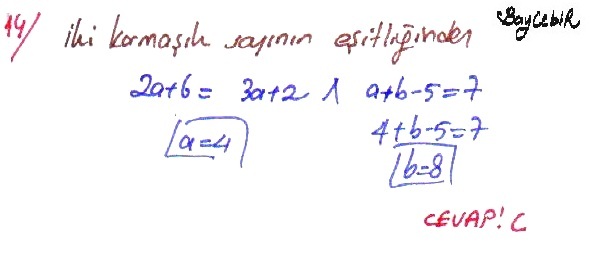 14/ İki karmaşık sayının eşitliğinden BayCebİR
2a+6= 3a+2 ∧ a+b-5=7
a=4 4+b-5=7
b=8
CEVAP! C